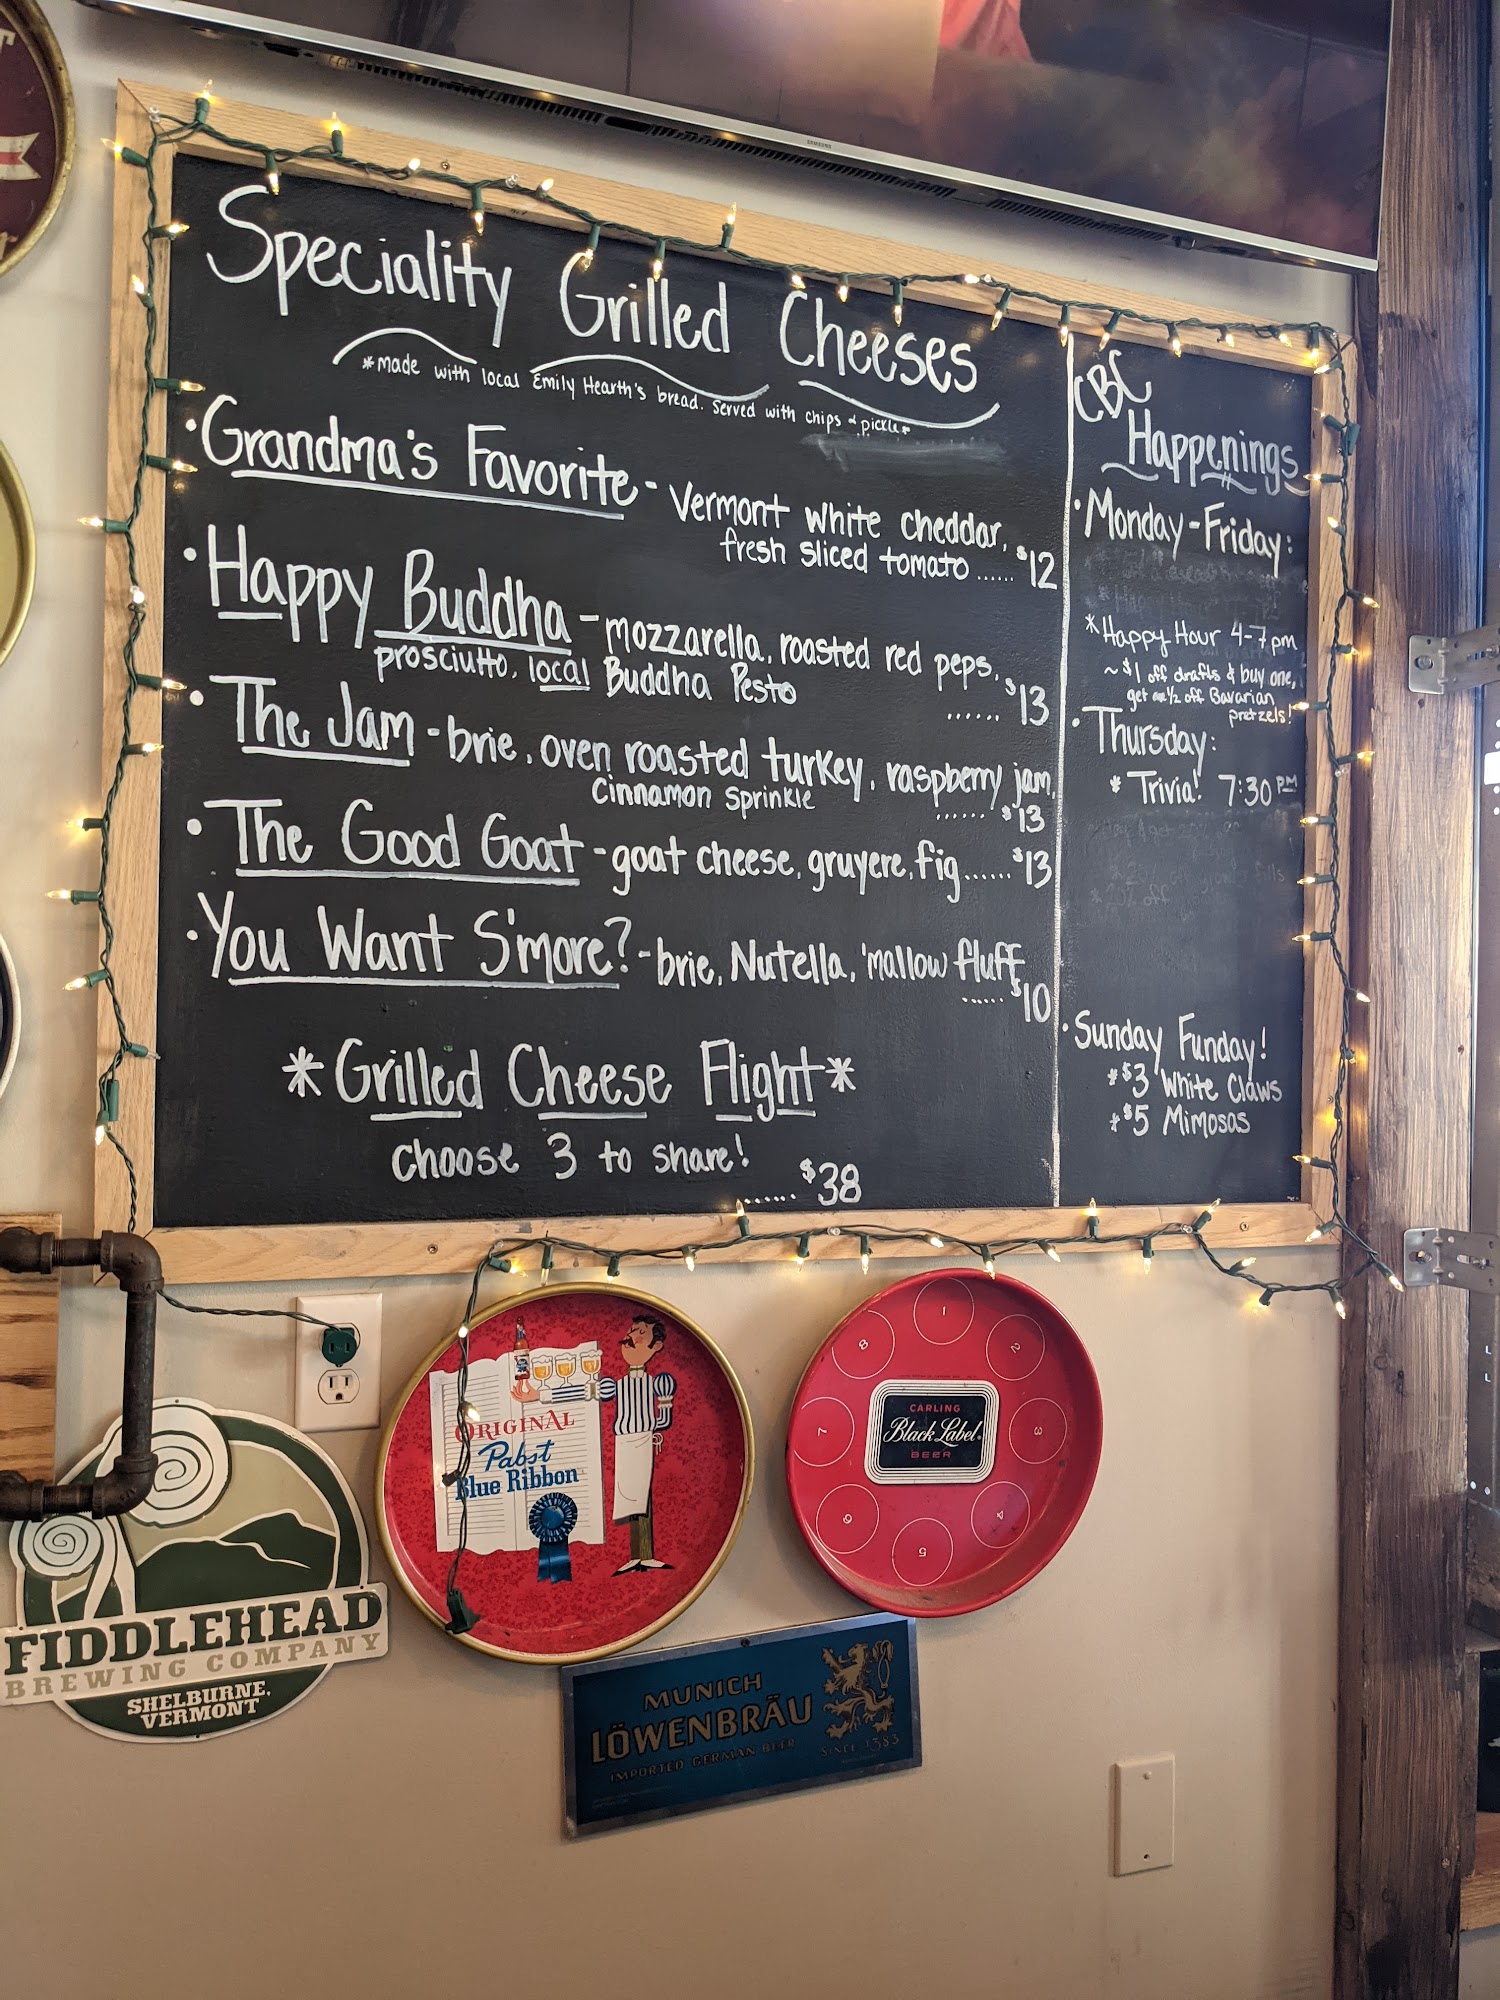 Speciality Grilled Cheeses
*made with local Emily Hearth's bread. Served with chips & pickle*
• Grandma's Favorite - Vermont white cheddar,
fresh sliced tomato ...... $12
• Happy Buddha - mozzarella, roasted red peps,
prosciutto, local Buddha Pesto
...... $13
• The Jam - brie, oven roasted turkey, raspberry jam,
Cinnamon sprinkle
...... $13
• The Good Goat - goat cheese, gruyere, fig...... $13
• You Want S'more? - brie, Nutella, 'mallow fluff
...... $10
*Grilled Cheese Flight*
choose 3 to share!
...... $38
CBC
Happenings
• Monday-Friday:
*Happy Hour 4-7pm
~ $1 off drafts & buy one,
get 1/2 off Bavarian
pretzels!
• Thursday:
* Trivia! 7:30 PM
• Sunday Funday!
*$3 White Claws
*$5 Mimosas
SAMSUNG
ORIGINAL
Pabst
Blue Ribbon
1
2
3
4
5
6
7
8
CARLING
Black Label
BEER
FIDDLEHEAD
BREWING COMPANY
SHELBURNE,
VERMONT
MUNICH
LÖWENBRÄU
IMPORTED GERMAN BEER
SINCE 1383